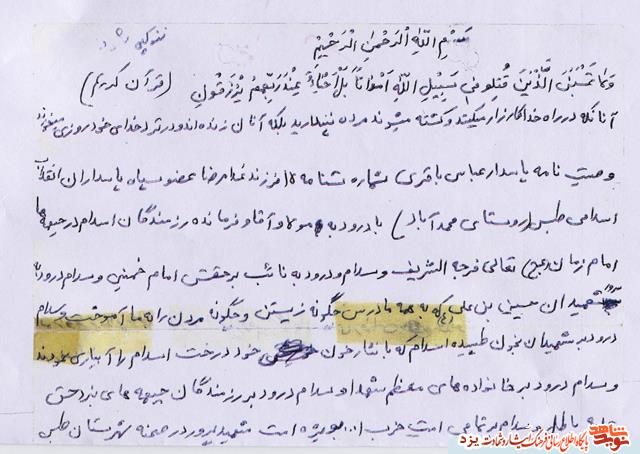 بِسْمِ اللهِ الْرَحْمٰنِ الْرَحیْمِ
وَلاٰ تَحْسَبَنَّ الَّذْیْنَ قُتِلُو فیٖ سَبِیْلِ اللهِ اَمْوٰاتاً بَلْ اَحْیٰاءٌ عِنْدَ رَبِّهِمْ یُرْزَقُونِ (قرآن کریم)
آنانکه در راه خدا کارزار میکنند و کشته میشوند مرده نپندارید بلکه آنان زنده اند و در نزد خدای خود روزی میخورند
وصیت نامه پاسدار عباس باقری شماره شناسنامه فرزند غلامرضا عضو سپاه پاسداران انقلاب
اسلامی طبس (روستای محمد آباد) با درود به مولا و آقا و فرمانده رزمندگان اسلام در جبهه ها
امام زمان (عج) تعالی فرجه الشریف و سلام و درود به نائب برحقش امام خمینی و سلام و درود به
شهیدان حسین بن علی (ع) که به همه ما درس چگونه زیستن و چگونه مردن را به ما آموخت و سلام
درود بر شهیدان بخون طپیده اسلام که با نثار خون خود درخت اسلام را آبیاری نمودند
و سلام درود بر خانواده های معظم شهدا و سلام درود بر رزمندگان جبهه های نبرد حق
علیه باطل و سلام بر تمامی امت حزب ا... بویژه امت شهید پرور در صحنه شهرستان طبس
نوید شاهد
پایگاه اطلاع رسانی فرهنگ ایثار و شهادت یزد